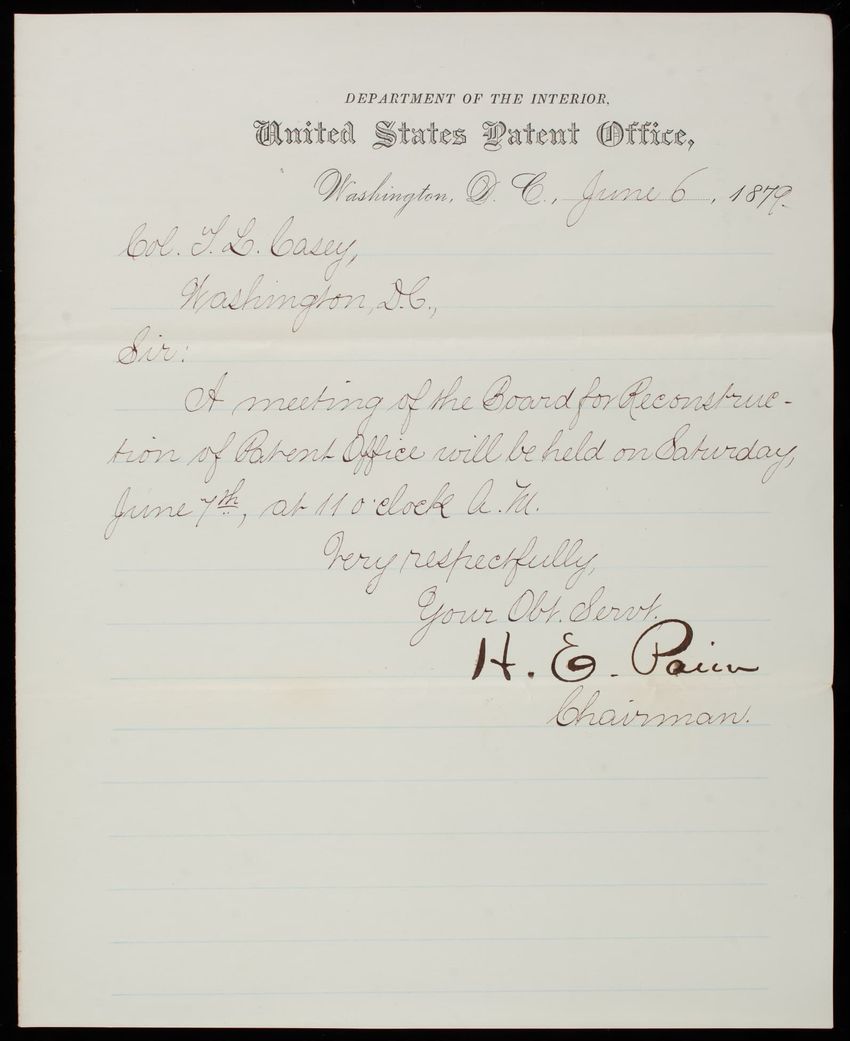 DEPARTMENT OF THE INTERIOR,
United States Patent Office,
Washington, D. C., June 6, 1879.
Col. T. L. Casey,
Washington, D.C.,
Sir:
A meeting of the Board for Reconstruc-
tion of Patent Office will be held on Saturday,
June 7th, at 11 o'clock A. M.
Very respectfully,
Your Obt. Servt.
H. E. Paine
Chairman.